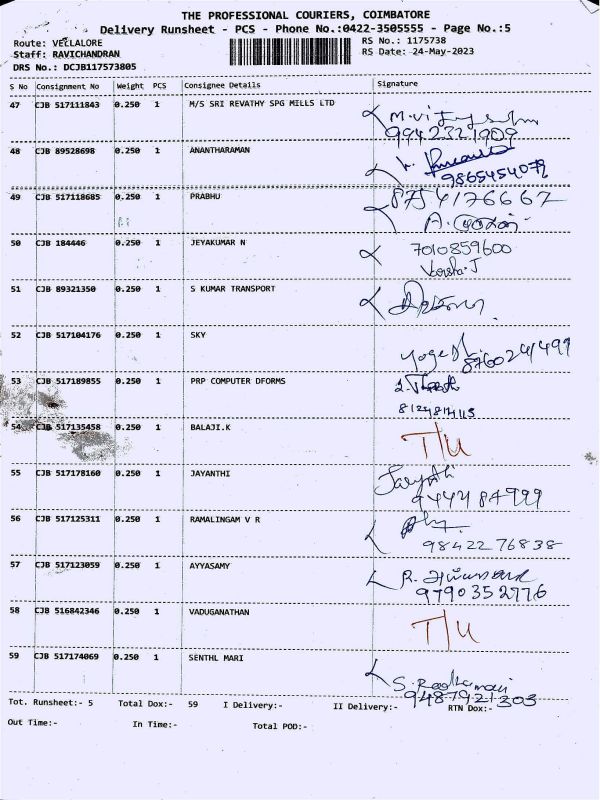 THE PROFESSIONAL COURIERS, COIMBATORE
Delivery Runsheet - PCS - Phone No.:0422-3505555 - Page No.:5
Route: VELLALORE
RS No.: 1175738
Staff: RAVICHANDRAN
RS Date: 24-May-2023
DRS No.: DCJB117573805
S No Consignment No Weight PCS Consignee Details Signature
47 CJB 517111843 0.250 1 M/S SRI REVATHY SPG MILLS LTD
9942321909
48 CJB 89528698 0.250 1 ANANTHARAMAN
9865454079
49 CJB 517118685 0.250 1 PRABHU 8754176667
50 CJB 184446 0.250 1 JEYAKUMAR N 7010859600
Varsha.J
51 CJB 89321350 0.250 1 S KUMAR TRANSPORT
52 CJB 517104176 0.250 1 SKY
8760241499
53 CJB 517189855 0.250 1 PRP COMPUTER DFORMS
54 CJB 517135458 0.250 1 BALAJI.K T/U
55 CJB 517178160 0.250 1 JAYANTHI
9442184999
56 CJB 517125311 0.250 1 RAMALINGAM V R
9842276838
57 CJB 517123059 0.250 1 AYYASAMY
9790352776
58 CJB 516842346 0.250 1 VADUGANATHAN T/U
59 CJB 517174069 0.250 1 SENTHL MARI
9487921303
Tot. Runsheet:- 5 Total Dox:- 59 I Delivery:- II Delivery:- RTN Dox:-
Out Time:- In Time:- Total POD:-